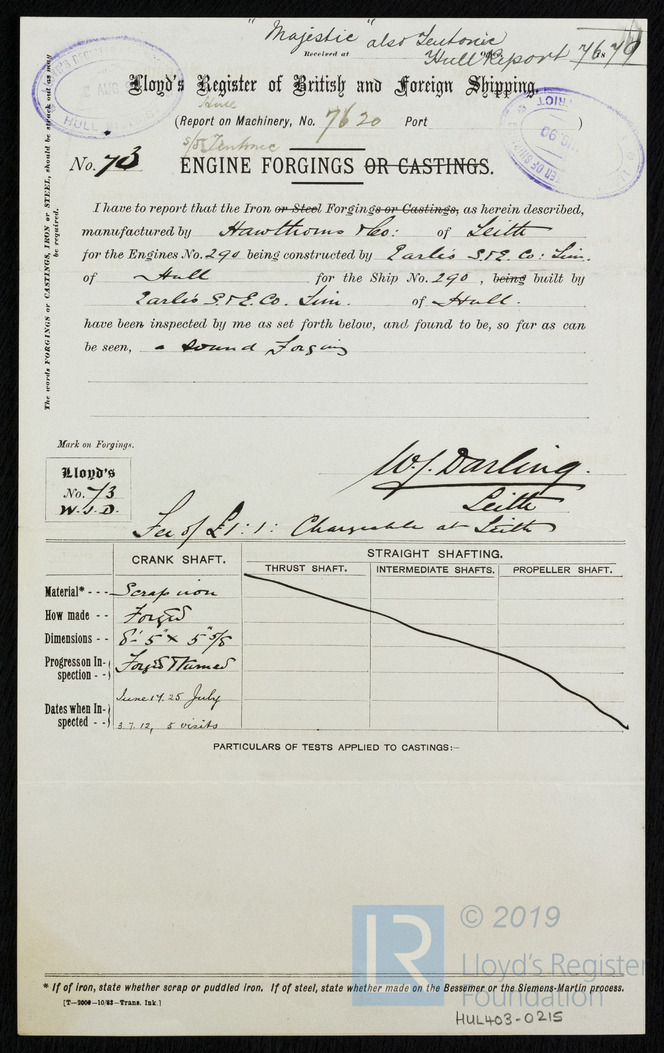 "Majestic" also Teutonic
Received at
Hull Report 7679
Lloyd's Register of British and Foreign Shipping.
Hull
(Report on Machinery, No. 7620 Port )
s/s Teutonic
No. 73 ENGINE FORGINGS OR CASTINGS.
The words FORGINGS or CASTINGS, IRON or STEEL, should be struck out as may be required.
I have to report that the Iron or Steel Forgings or Castings, as herein described,
manufactured by Hawthorns & Co: of Leith
for the Engines No. 290 being constructed by Earles S. & E. Co: Lim.
of Hull for the Ship No. 290, being built by
Earles S. & E. Co. Lim. of Hull.
have been inspected by me as set forth below, and found to be, so far as can
be seen, a sound Forging
Mark on Forgings.
W. J. Darling.
Lloyd's
No. 73
W.J.D.
Leith
Fee of £1:1: Chargeable at Leith
CRANK SHAFT. STRAIGHT SHAFTING.
THRUST SHAFT. INTERMEDIATE SHAFTS. PROPELLER SHAFT.
Material* - - - Scrap iron
How made - - Forged
Dimensions - - 8'-5" × 5"5/8
Progress on In-
spection - - Forged & turned
June 17. 25 July
Dates when In-
spected - - 3.7.12, 5 visits
PARTICULARS OF TESTS APPLIED TO CASTINGS:—
© 2019
LR
Lloyd's Register
Foundation
* If of iron, state whether scrap or puddled iron. If of steel, state whether made on the Bessemer or the Siemens-Martin process.
[T—2000—10/83—Trans. Ink.]
HUL403-0215